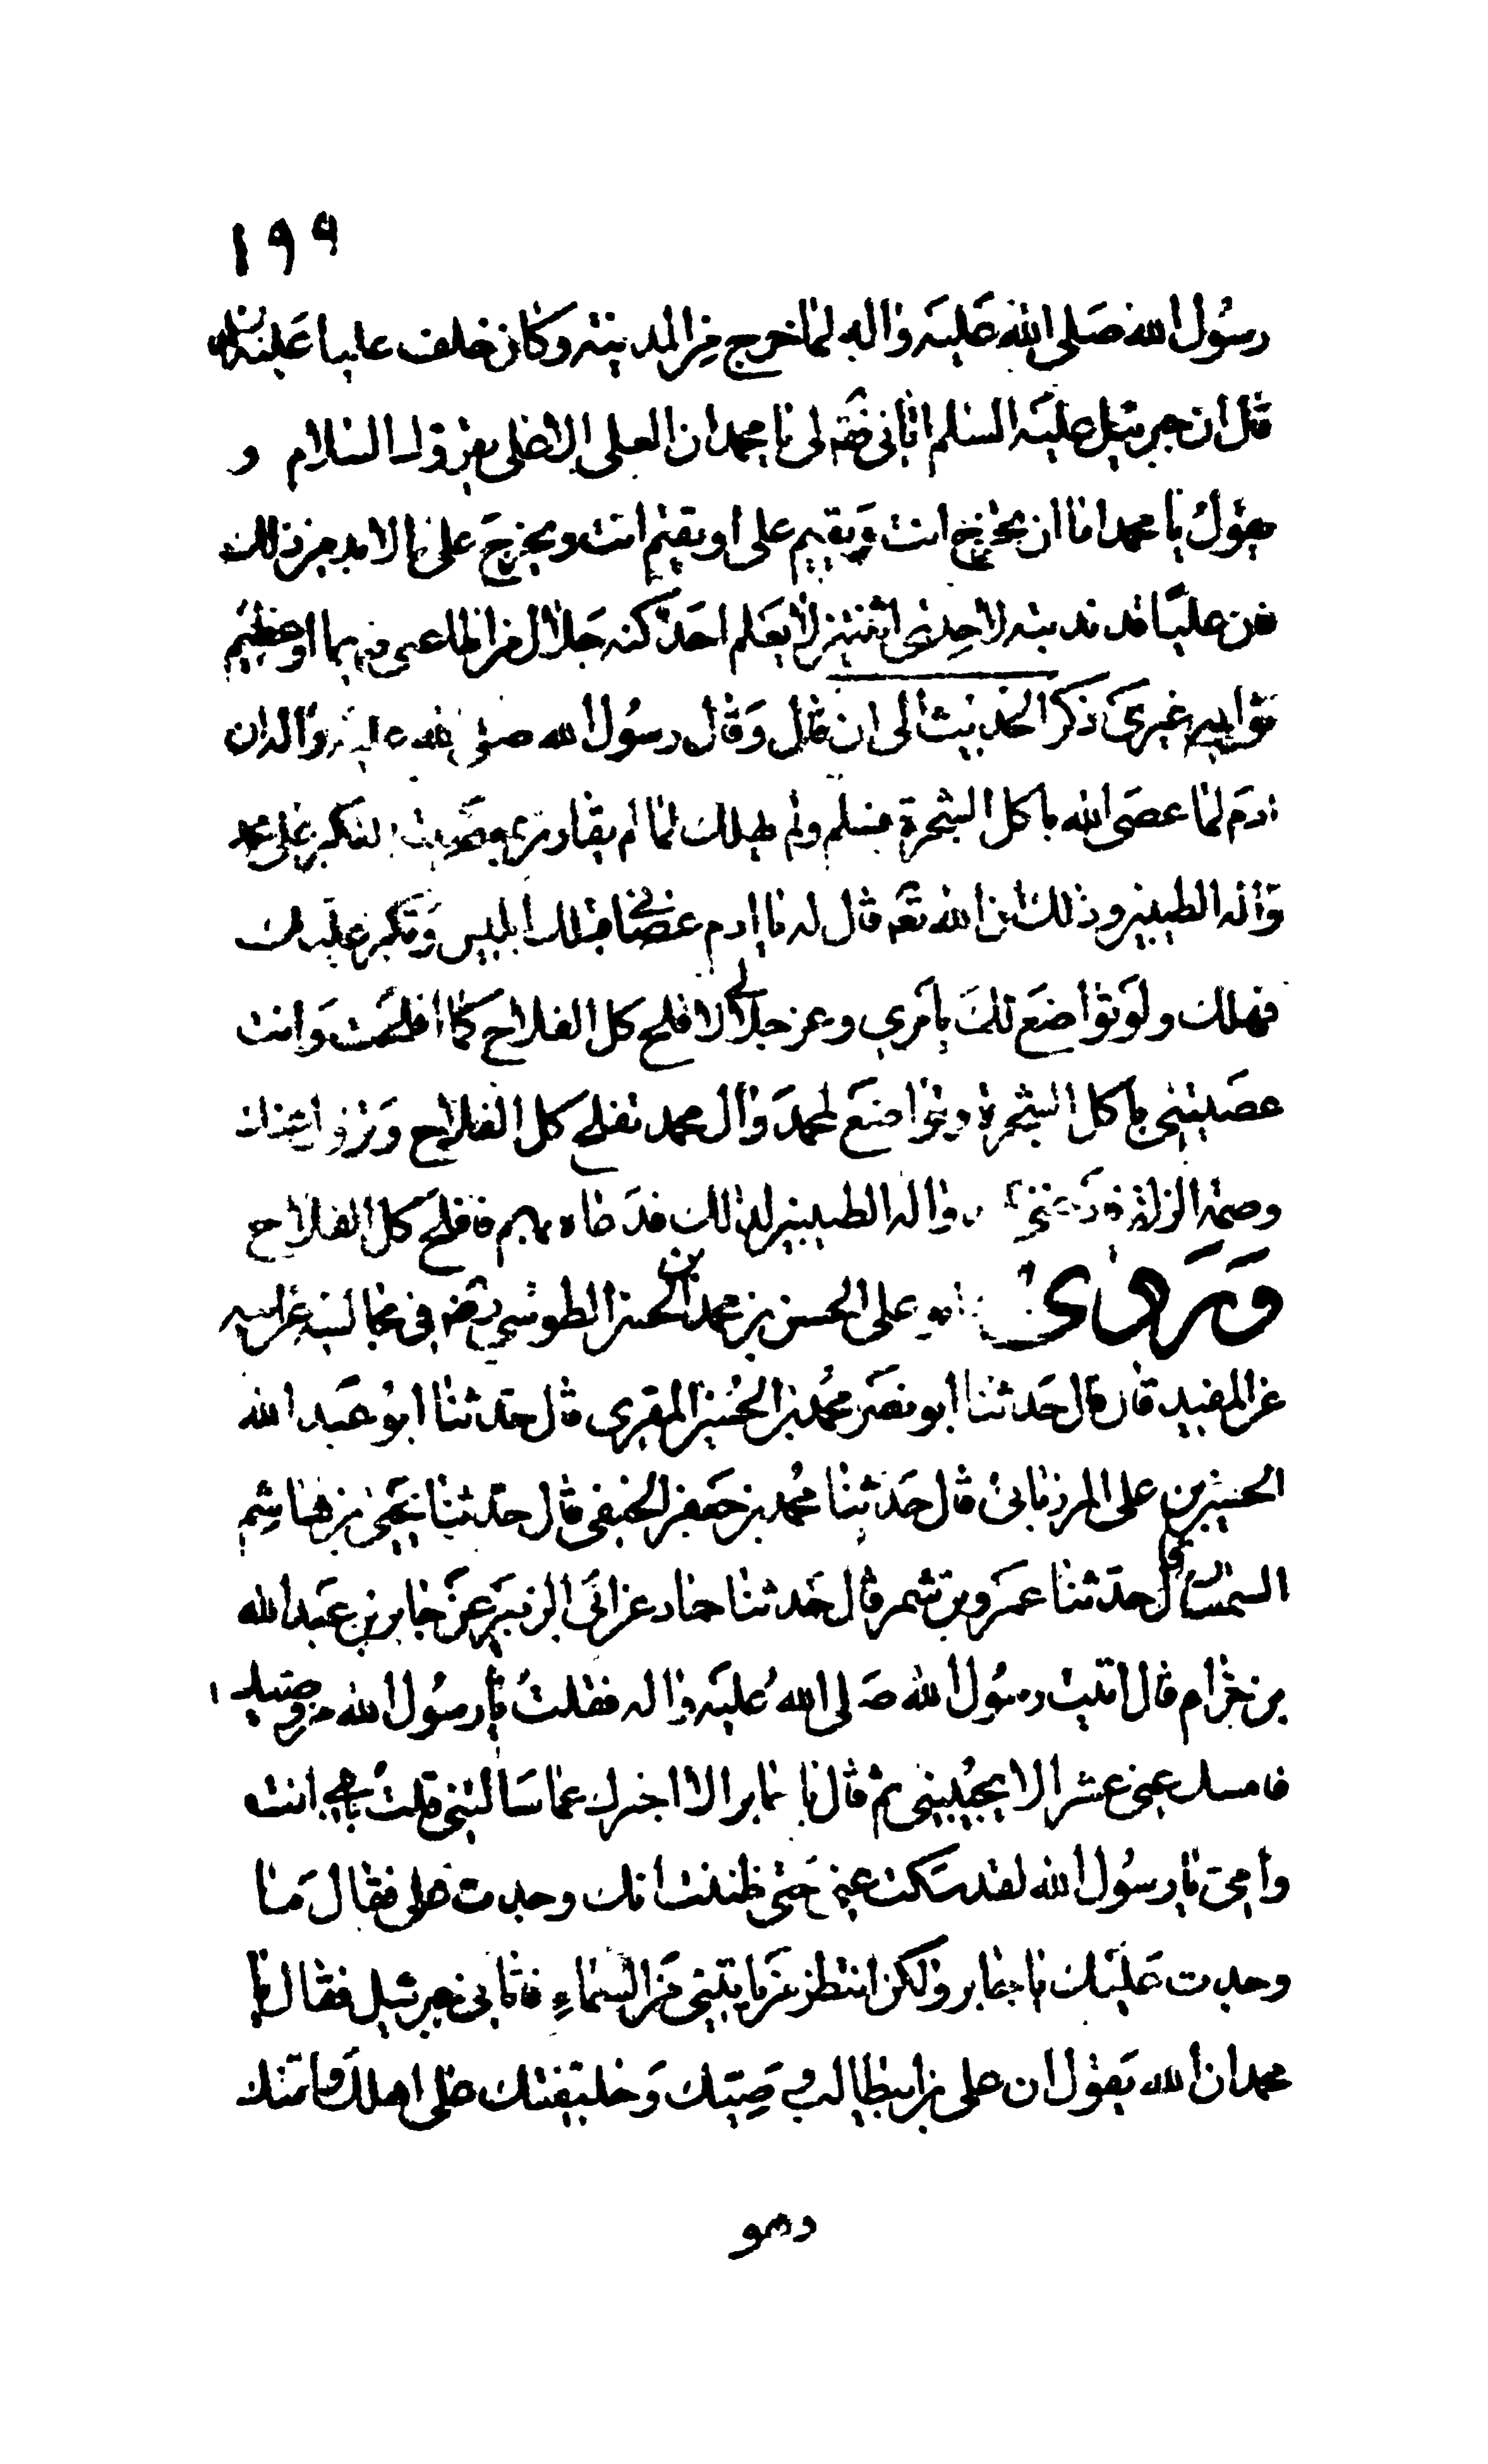 ١٩٩
رسُول الله صَلى الله عَليَه واله لما خرج مِن المدينة وكان خلف عليا عَليْه السلام
قال ان جبرئيل عليَه السلم اتانى فقه لى يا محمد ان العلى الاعلى يقرؤك السلام و
يقولُ يا محمد اما ان تخرج انت وَيقيم على او تقيم انت ويخرجَ على لا بد من ذلك
فان عليًا قد ندبته لاحِدى اثنتين لا يَعلم احَد كنه جَلال من اطاعنى فيهما او عظيم
ثوابه غيرى ذكر الحديث الى ان قال وَقال رسُول الله صلى الله عليه واله ان
ادمَ لما عصَى الله باكل الشجرة فسلم ولم يهلك لما لم يقارن بمعصيته التكبر على محمد
وَاله الطيبين وذلك ان الله تعَه قال له يا ادم عصانى فيك ابليس وَتكبر عليك
فهلك ولَو تواضعَ لك بامرى وعز جلالى لافلح كل الفلاح كما افلحَت وَانت
عصَيتنى باكل الشجرة وبتواضعَ لمحمدَ وال محمد تفلح كل الفلاح وَتزول عنك
وصمة الزلة فادعنى واله الطيبين لذلك فدَعاه بهم فافلحَ كل الفلاح
وَرَوى ابو على الحسن بن محمد بن الحسن الطوسى رضَه فى مجالسه عن ابيه
عن المفيد قال قال حَدثنا ابو نصَر محُمد بن الحُسين المقرى قال حدثنا ابوُ عبَد الله
الحسين بن على المرزبانى قال حَدثنا محُمد بن جَعفر الحنفى قال حدّثنا يَحَيى بن هاشِم
السمسار قال حدّثنا عمَرو بن شمر قال حَدثنا حماد عن ابَى الزبَير عنَ جابر بن عبَد الله
بن حزام قال اتيت رسُول الله صَلى الله عُليَه واله فقلتُ يا رسُول الله من وصيك
فامسك عنى عشرا لا يجيُبنى ثم قال يا جابر الا اخبرك عما سَالتنى قلتُ بابى انت
وامى يا رسُول الله لقد سَكت عنى حَتى ظننت انك وجدت على فقال مَا
وجدت عَليَك يا جابر ولكن انتظر مَا ياتينى مَن السماءِ فاتانى جبرئيل فقال يا
محمد ان الله يَقول ان على بن ابيطالب وصيَتك وَخليفتك على اهلك وامتك
وهو